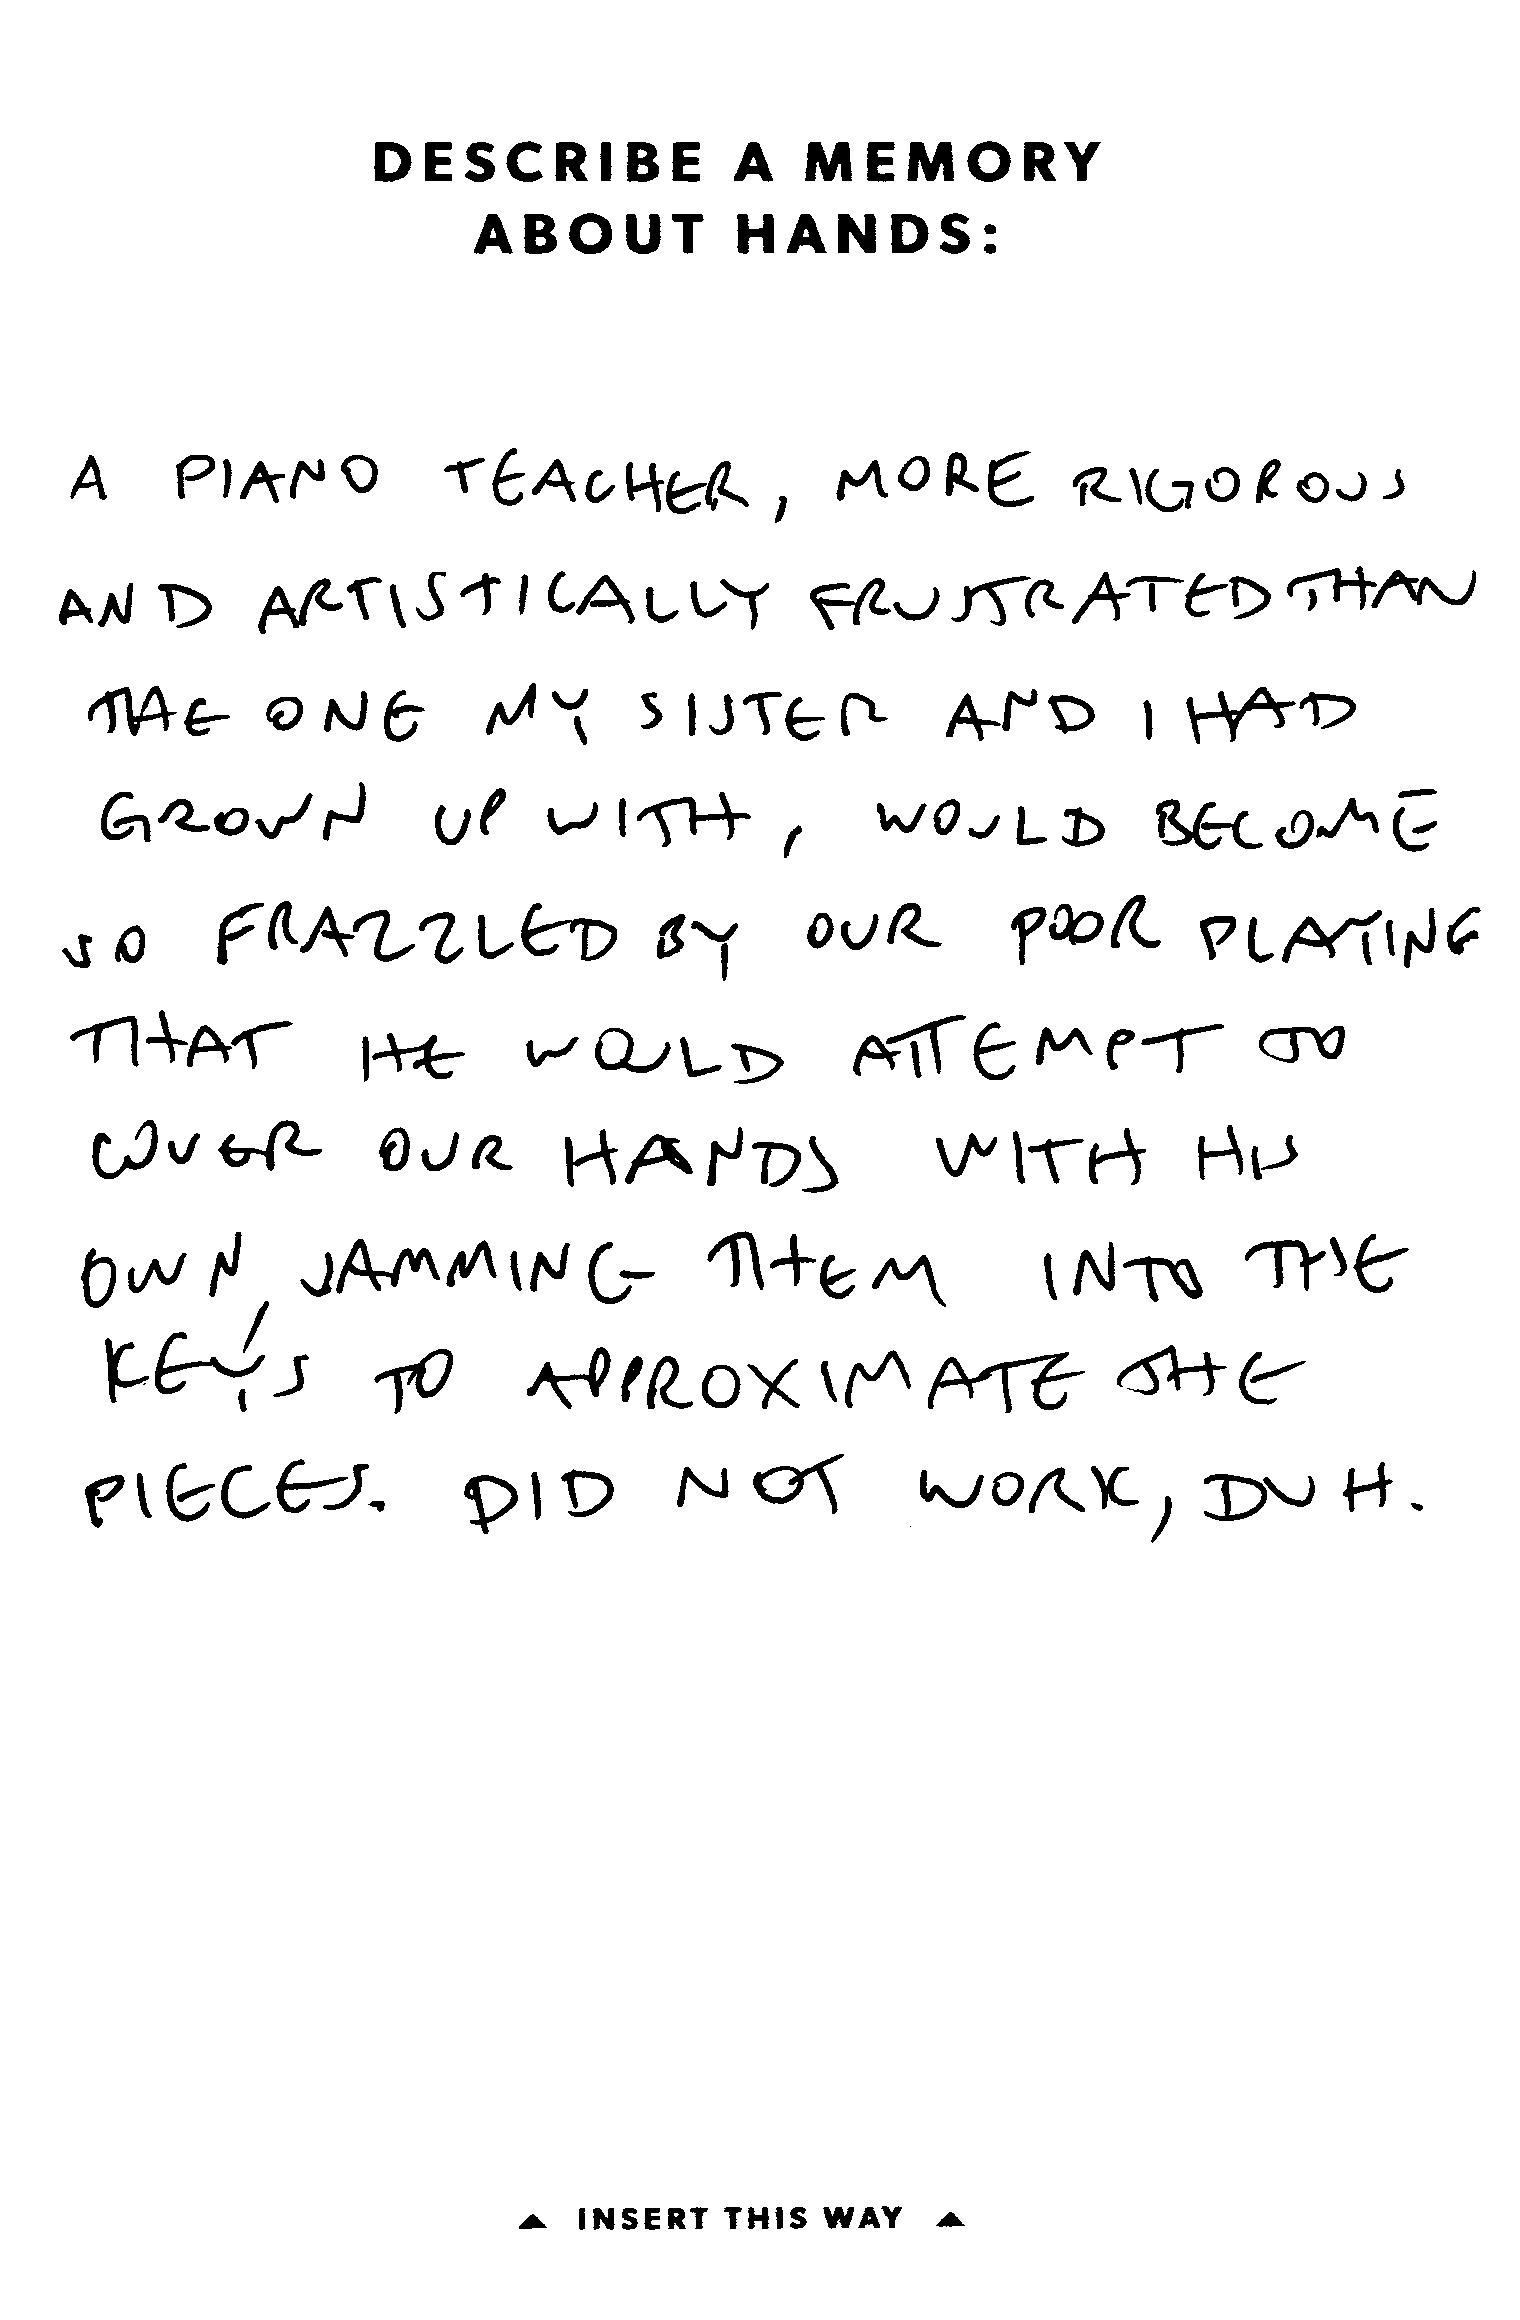 DESCRIBE A MEMORY
ABOUT HANDS:
A PIANO TEACHER, MORE RIGOROUS
AND ARTISTICALLY FRUSTRATED THAN
THE ONE MY SISTER AND I HAD
GROWN UP WITH, WOULD BECOME
SO FRAZZLED BY OUR POOR PLAYING
THAT HE WOULD ATTEMPT TO
COVER OUR HANDS WITH HIS
OWN, JAMMING THEM INTO THE
KEYS TO APPROXIMATE THE
PIECES. DID NOT WORK, DUH.
▲ INSERT THIS WAY ▲